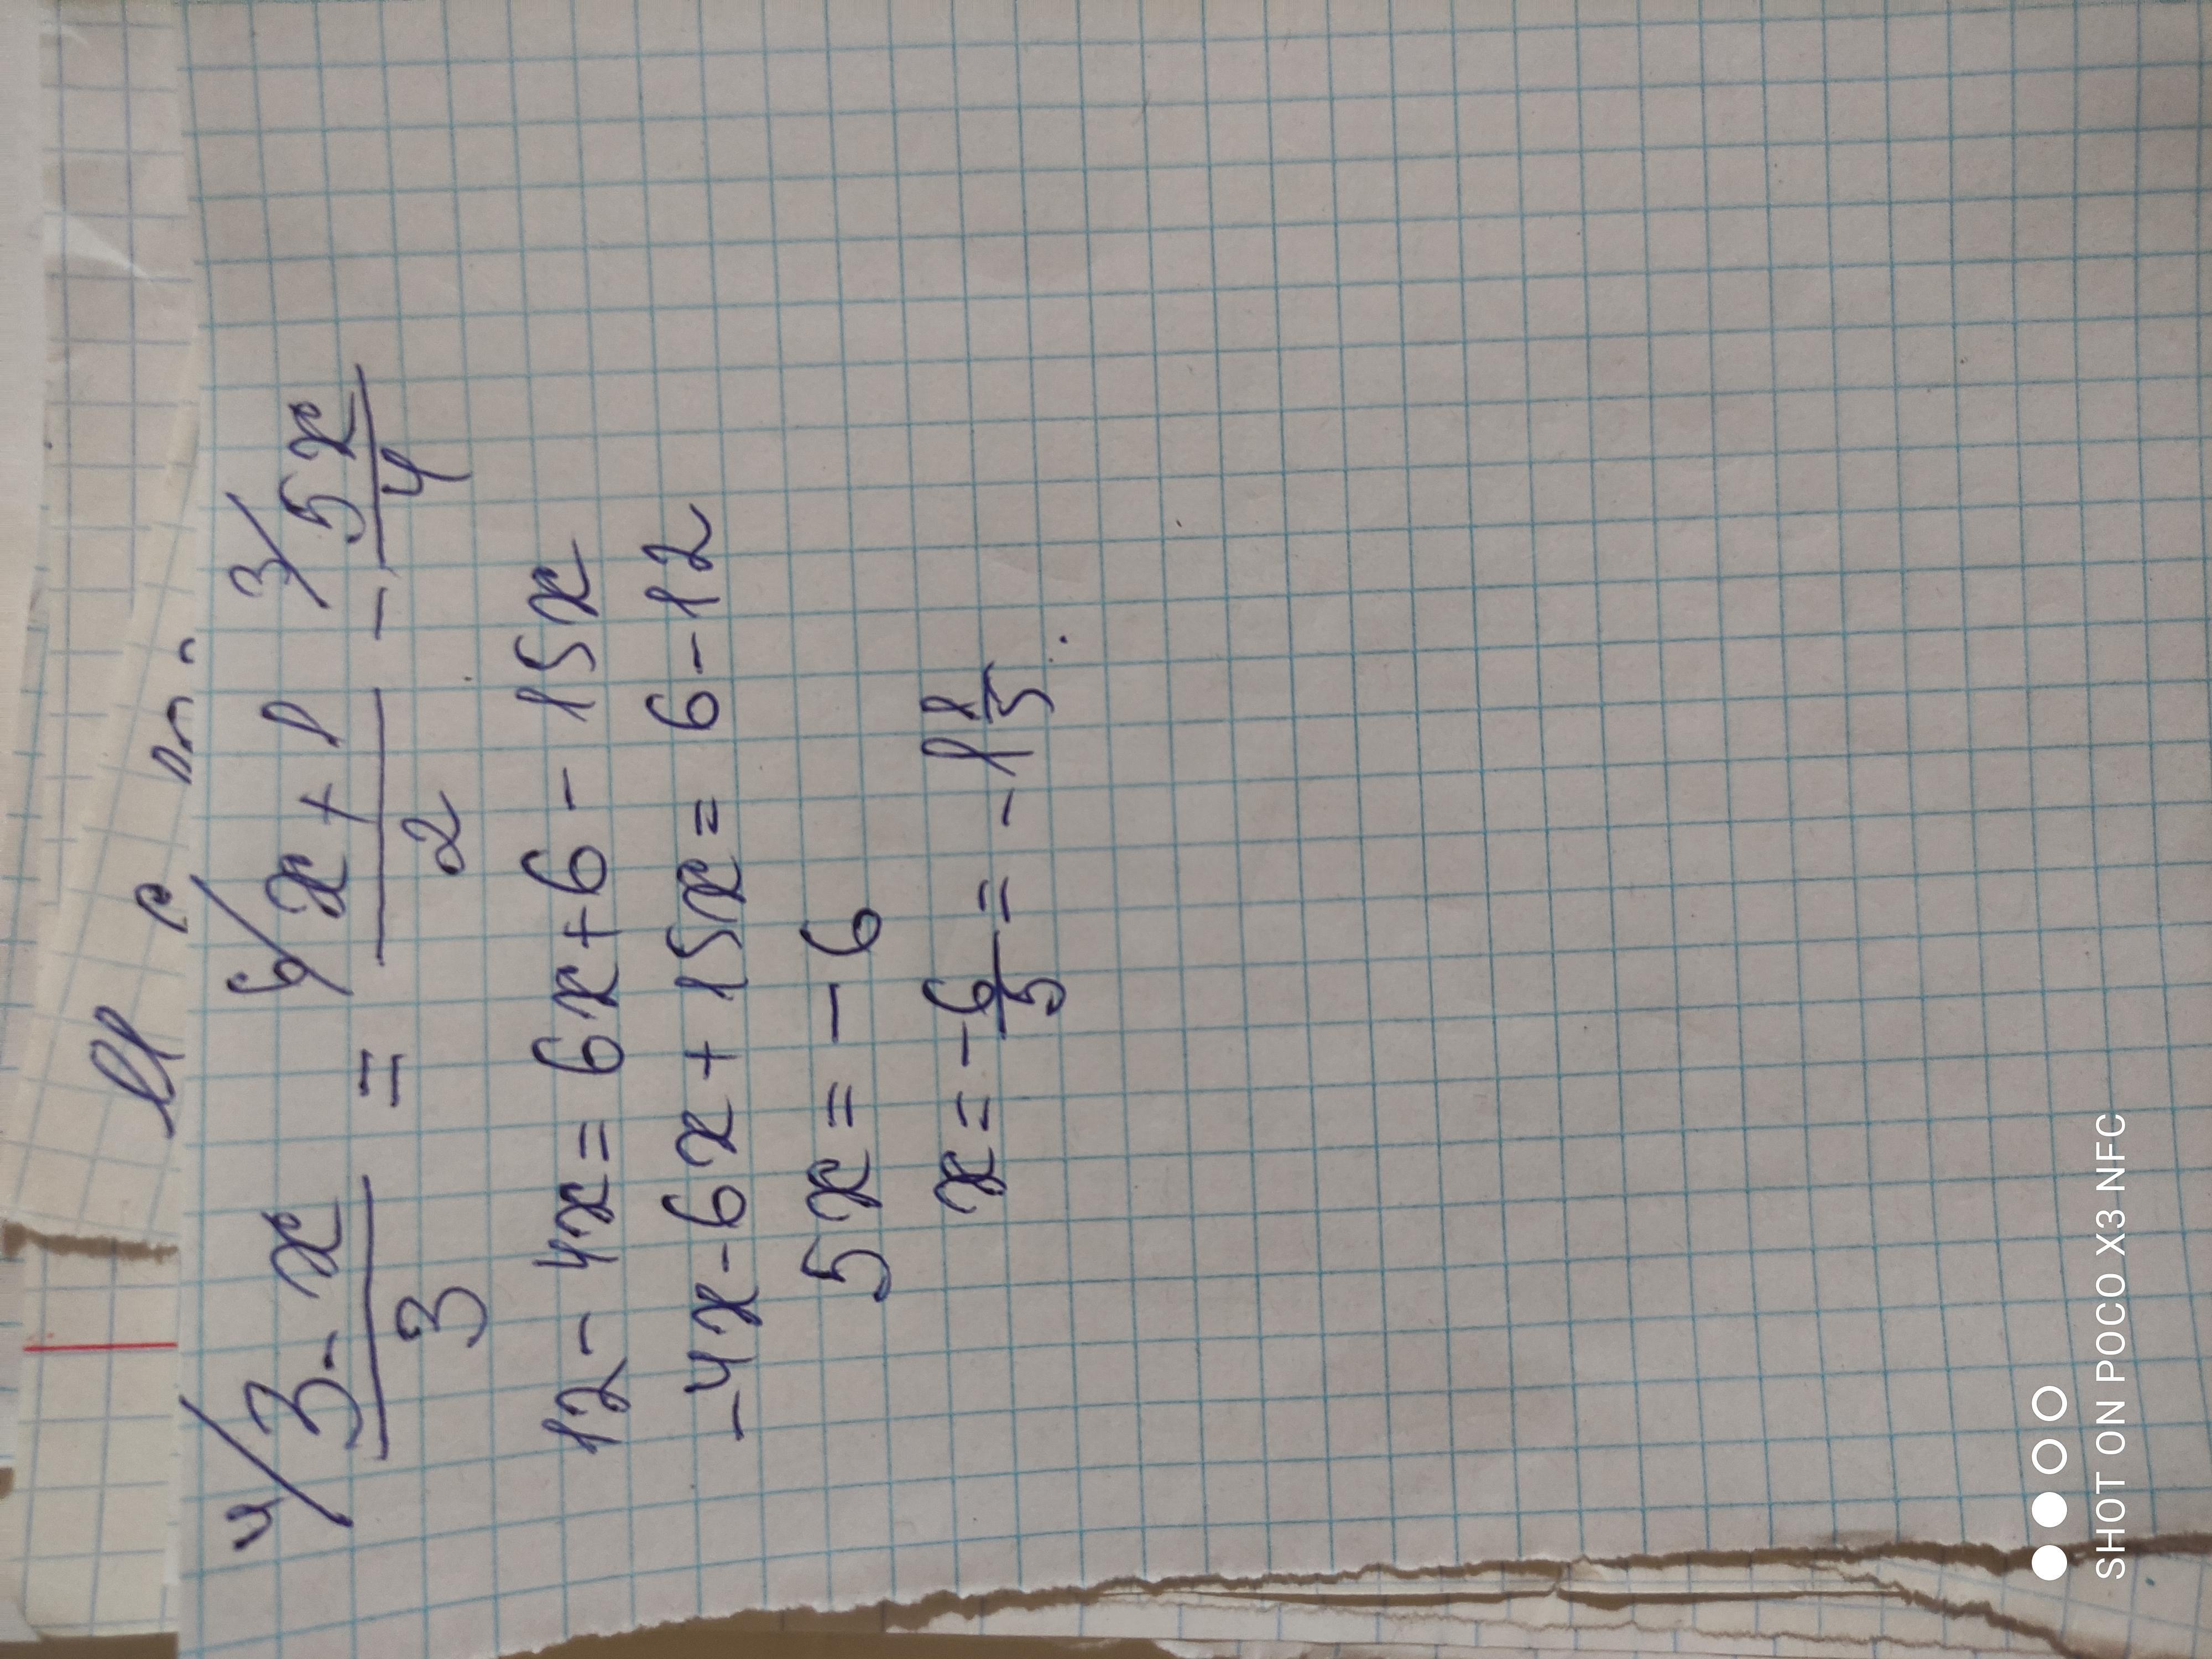 4/ 3-x/3 = 6/ x+1/2 - 3/ 5x/4
12 - 4x = 6x+6 - 15x
-4x-6x+15x = 6-12
5x = -6
x = -6/5 = -1 1/5.
SHOT ON POCO X3 NFC